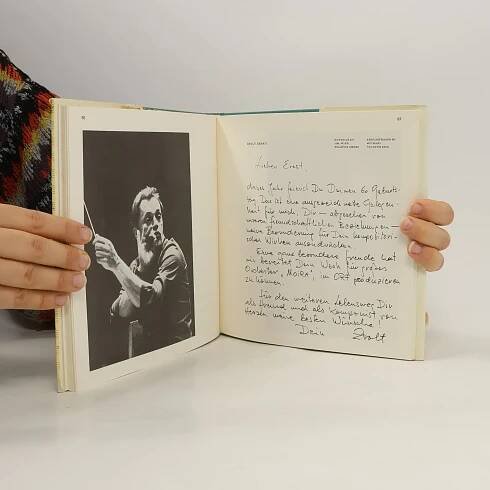 Lieben Ernst,
dieses Jahr feierst Du Deinen 60. Geburts-
tag. Das ist eine ausgezeichnete Gelegen-
heit für mich, Dir – abgesehen von
unseren freundschaftlichen Beziehungen –
meine Bewunderung für Dein kompositori-
sches Wirken auszudrücken.
Eine ganz besondere Freude hat
mir bereitet Dein Werk für großes
Orchester „MOIRA“, im ORF produzieren
zu können.
Für den weiteren Lebensweg Dir
als Freund und als Komponist von
Herzen meine besten Wünsche!
Dein